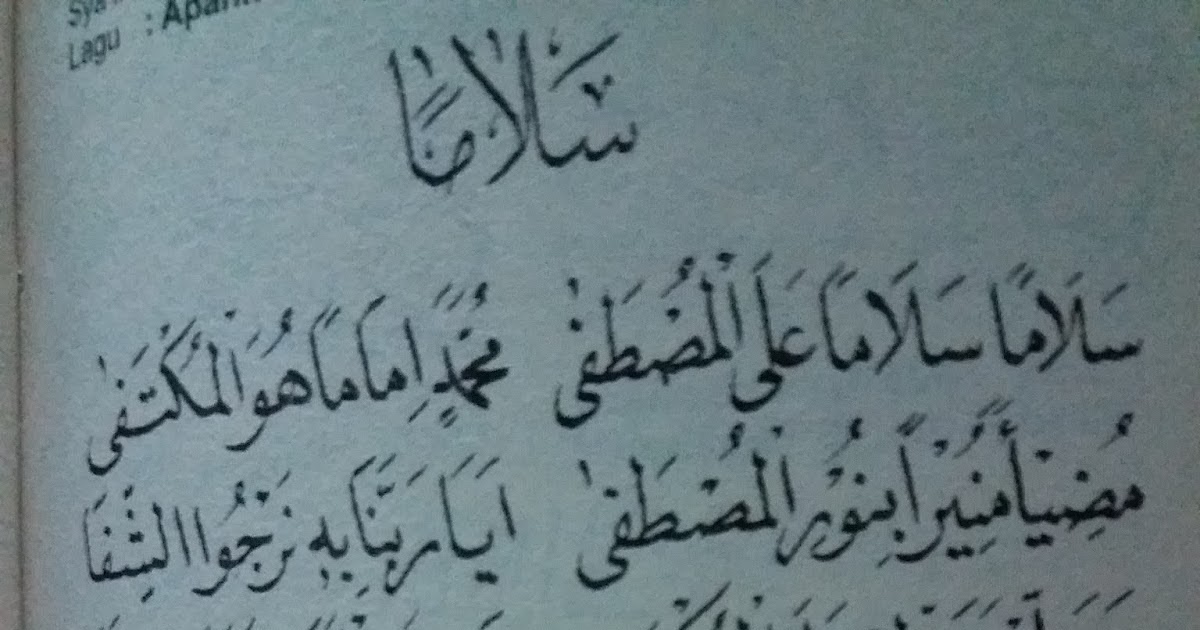 Lagu :
سَلَامًا
سَلَامًا سَلَامًا عَلَى الْمُصْطَفٰى مُحَمَّدٍ اِمَامًا هُوَ الْمُكْتَفٰى
مُضِيْأً مُنِيْرًا بِنُوْرِ الْمُصْطَفٰى اَيَا رَبَّنَا بِهِ نَرْجُوا الشِّفَا